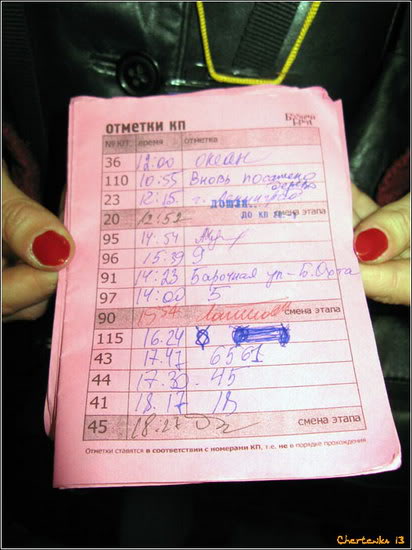 Бегущий
Город
ОТМЕТКИ КП
№ КП время отметка
36 12:00 океан
110 10:55 Вновь посажено дерево
23 12:15 г.
дошли..
20 12:52 до кп № смена этапа
95 14:54
96 15:39 9
91 14:23 Барочная ул - Б.
97 14:00 5
90 15:54 смена этапа
115 16.24
43 17.47 6561
44 17.30 45
41 18.17 18
45 18.27 смена этапа
Отметки ставятся в соответствии с номерами КП, т.е. не в порядке прохождения
Chertenka i3